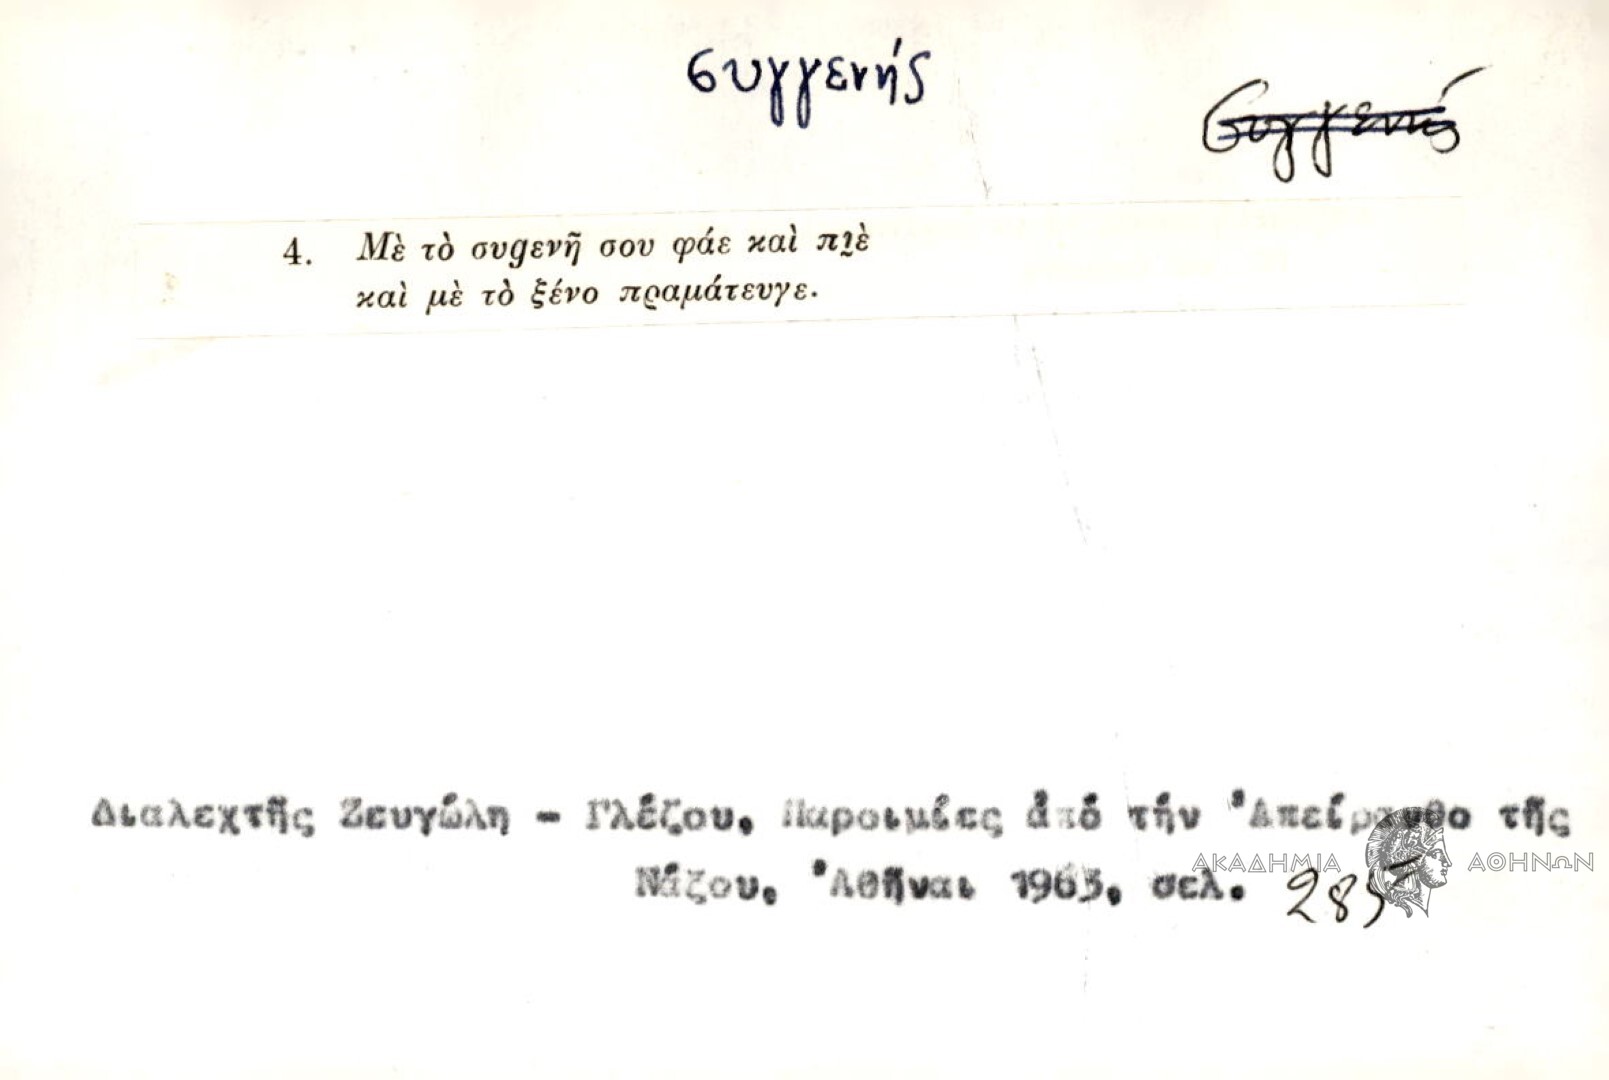 συγγενής
Συγγενής
4. Μὲ τὸ συgενῆ σου φάε καὶ πι̯ὲ
καὶ μὲ τὸ ξένο πραμάτευγε.
Διαλεχτῆς Ζευγώλη - Γλέζου, Παροιμίες ἀπό τήν Ἀπείρανθο τῆς
Νάξου, Ἀθῆναι 1963, σελ. 285
ΑΚΑΔΗΜΙΑ ΑΘΗΝΩΝ